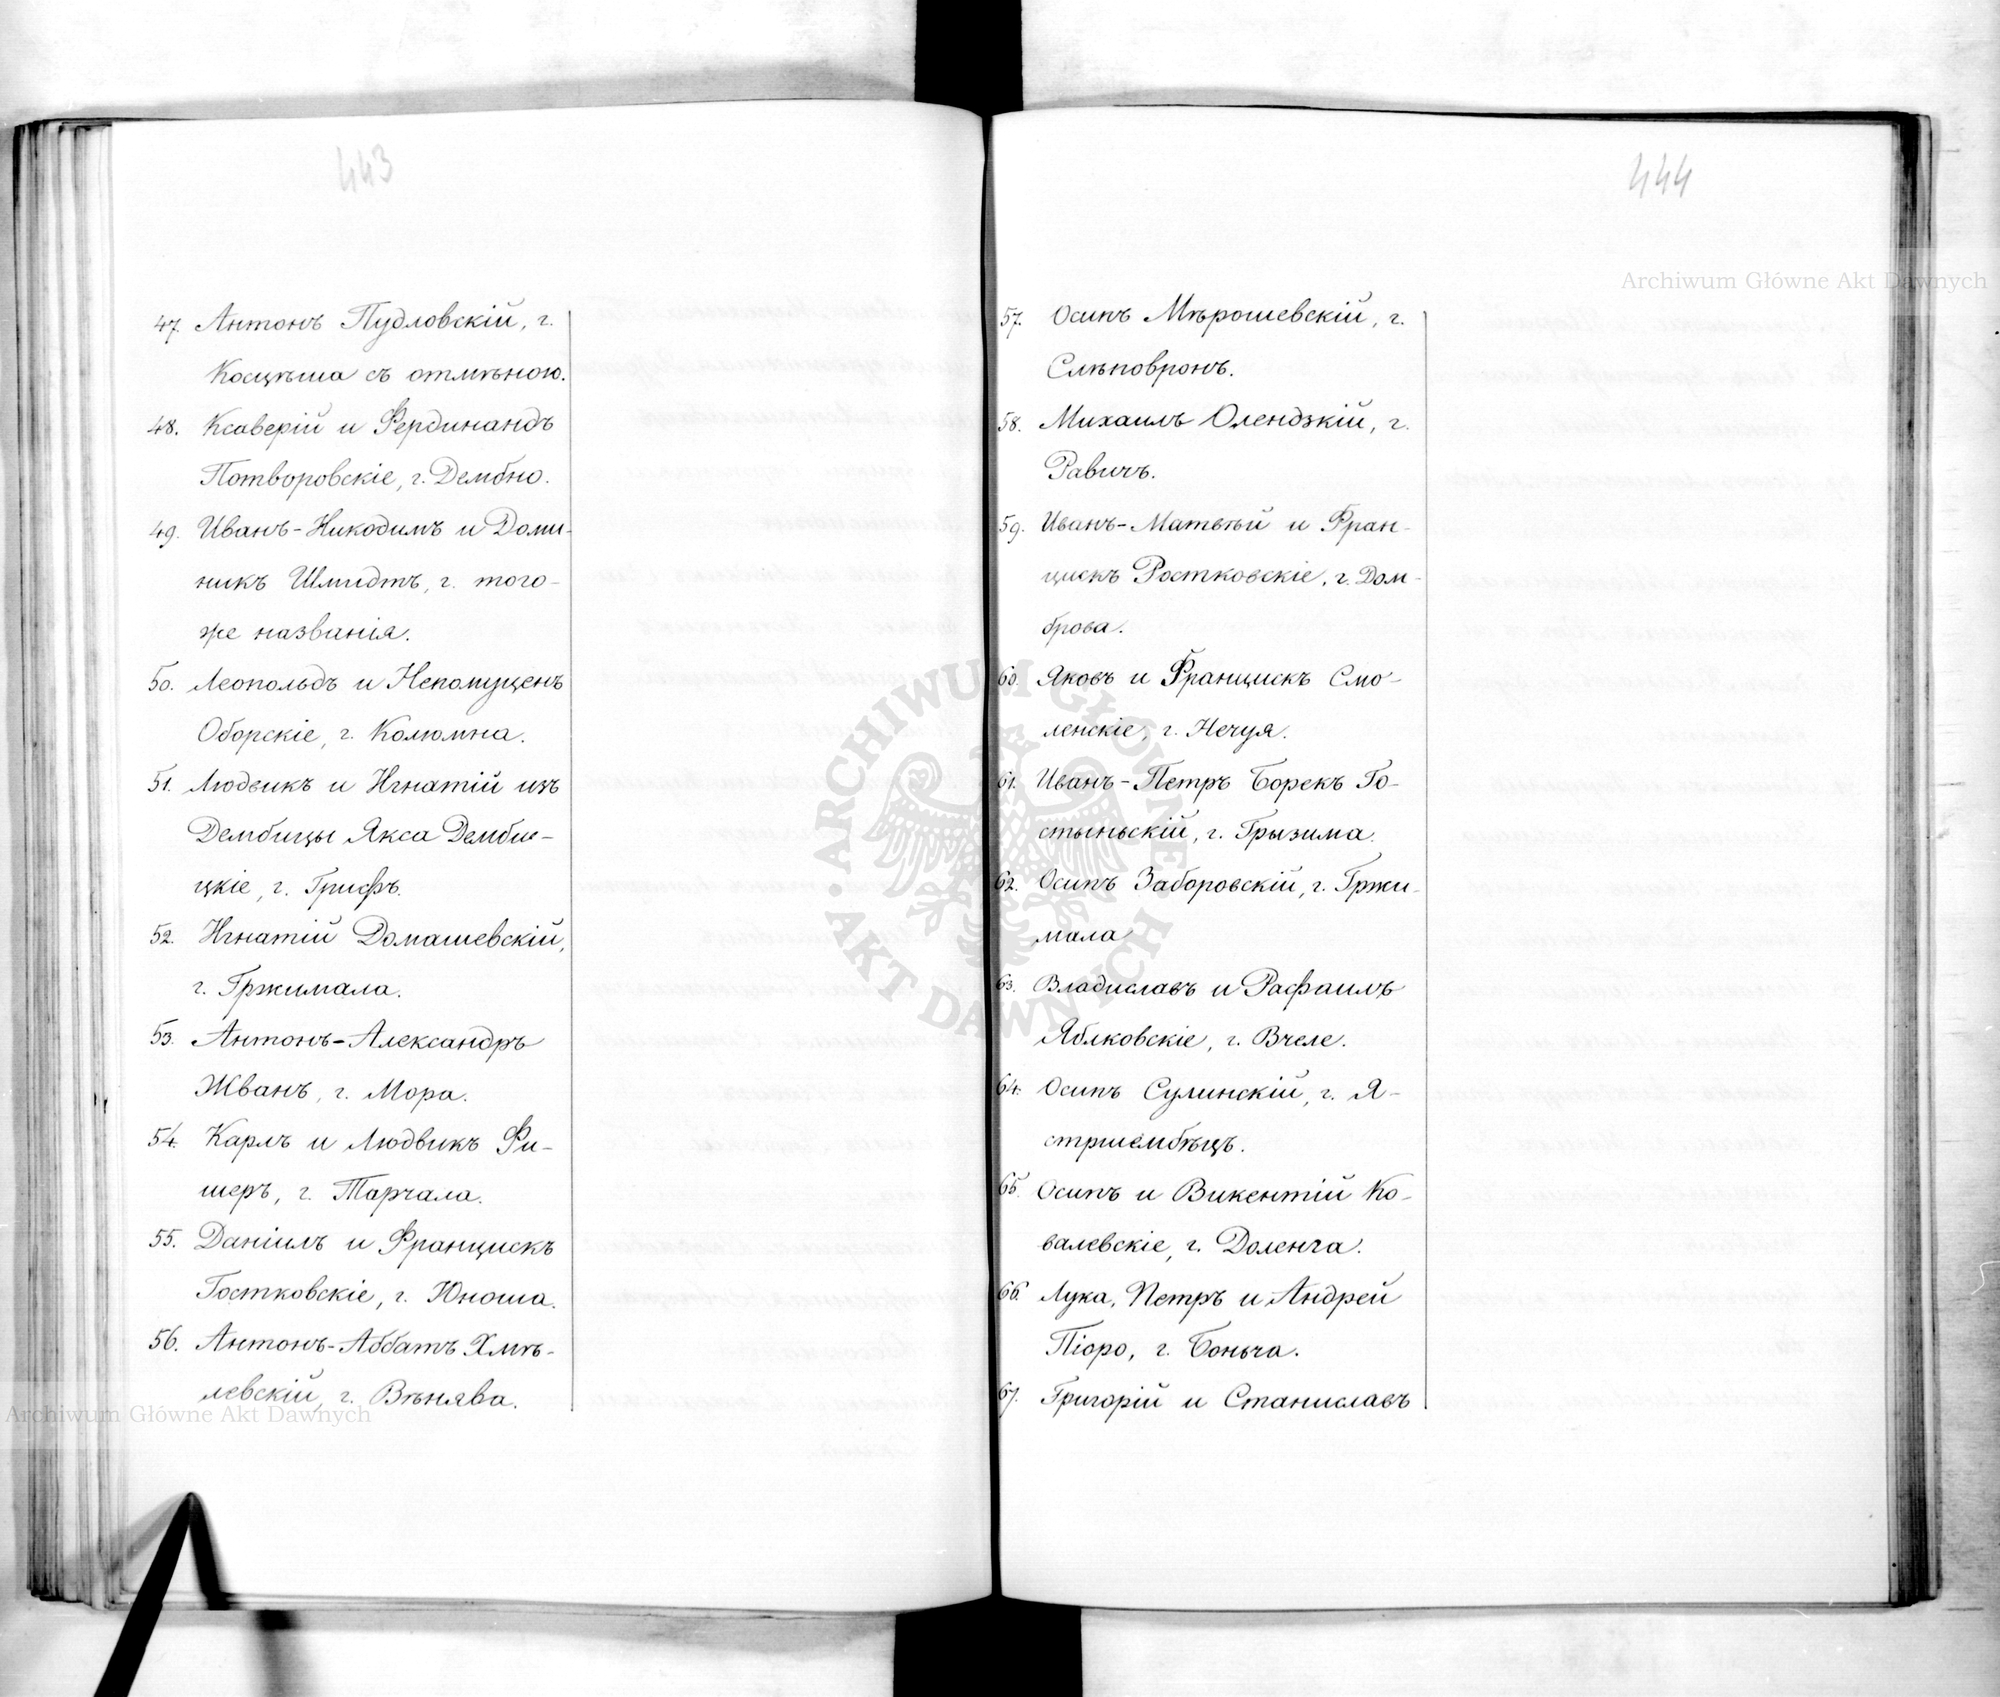 443
47. Антонъ Пудловскій, г.
Косцѣша съ отмѣною.
48. Ксаверій и Фердинандъ
Потворовскіе, г. Дембно.
49. Иванъ-Никодимъ и Доми-
никъ Шмидтъ, г. того-
же названія.
50. Леопольдъ и Непомуценъ
Оборскіе, г. Колюмна.
51. Людвикъ и Игнатій изъ
Дембицы Якса Дембиц-
цкіе, г. Грифъ.
52. Игнатій Домашевскій,
г. Гржимала.
53. Антонъ-Александръ
Жванъ, г. Мора.
54. Карлъ и Людвикъ Фи-
шеръ, г. Тарчала.
55. Даніилъ и Францискъ
Гостковскіе, г. Юноша.
56. Антонъ-Аббатъ Хмѣ-
левскій, г. Вѣнява.
Archiwum Główne Akt Dawnych
444
Archiwum Główne Akt Dawnych
57. Осипъ Мѣрошевскій, г.
Слѣповронъ.
58. Михаилъ Олендзкій, г.
Равичъ.
59. Иванъ-Матвѣй и Фран-
цискъ Ростковскіе, г. Дом-
брова.
60. Яковъ и Францискъ Смо-
ленскіе, г. Нечуя.
61. Иванъ-Петръ Борекъ Го-
стыньскій, г. Грызима.
62. Осипъ Заборовскій, г. Гржи-
мала
63. Владиславъ и Рафаилъ
Яблковскіе, г. Вчеле.
64. Осипъ Сулинскій, г. Я-
стршембѣцъ.
65. Осипъ и Викентій Ко-
валевскіе, г. Доленга.
66. Лука, Петръ и Андрей
Піоро, г. Боньча.
67. Григорій и Станиславъ
ARCHIWUM GŁÓWNE AKT DAWNYCH